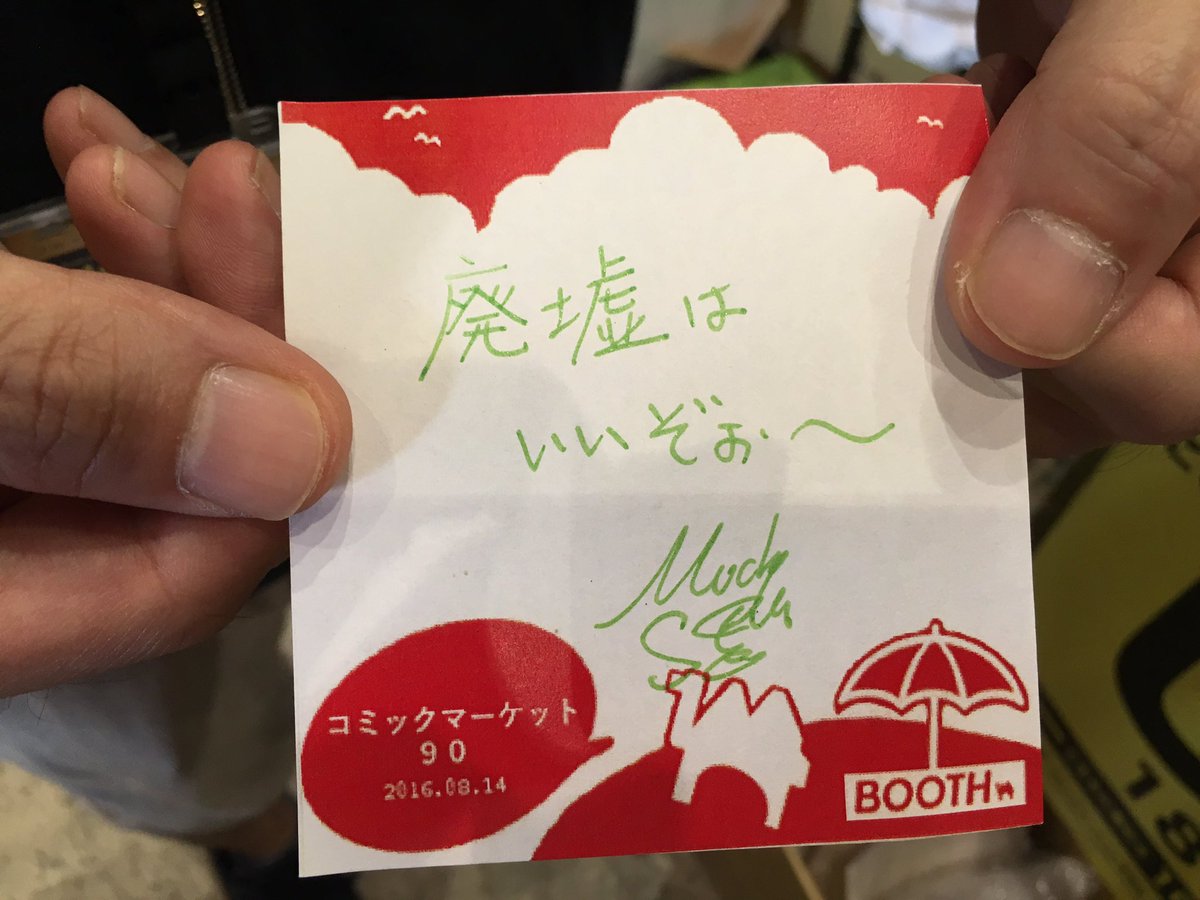 廃墟は
いいぞぉ〜
コミックマーケット
90
2016.08.14
BOOTH
18